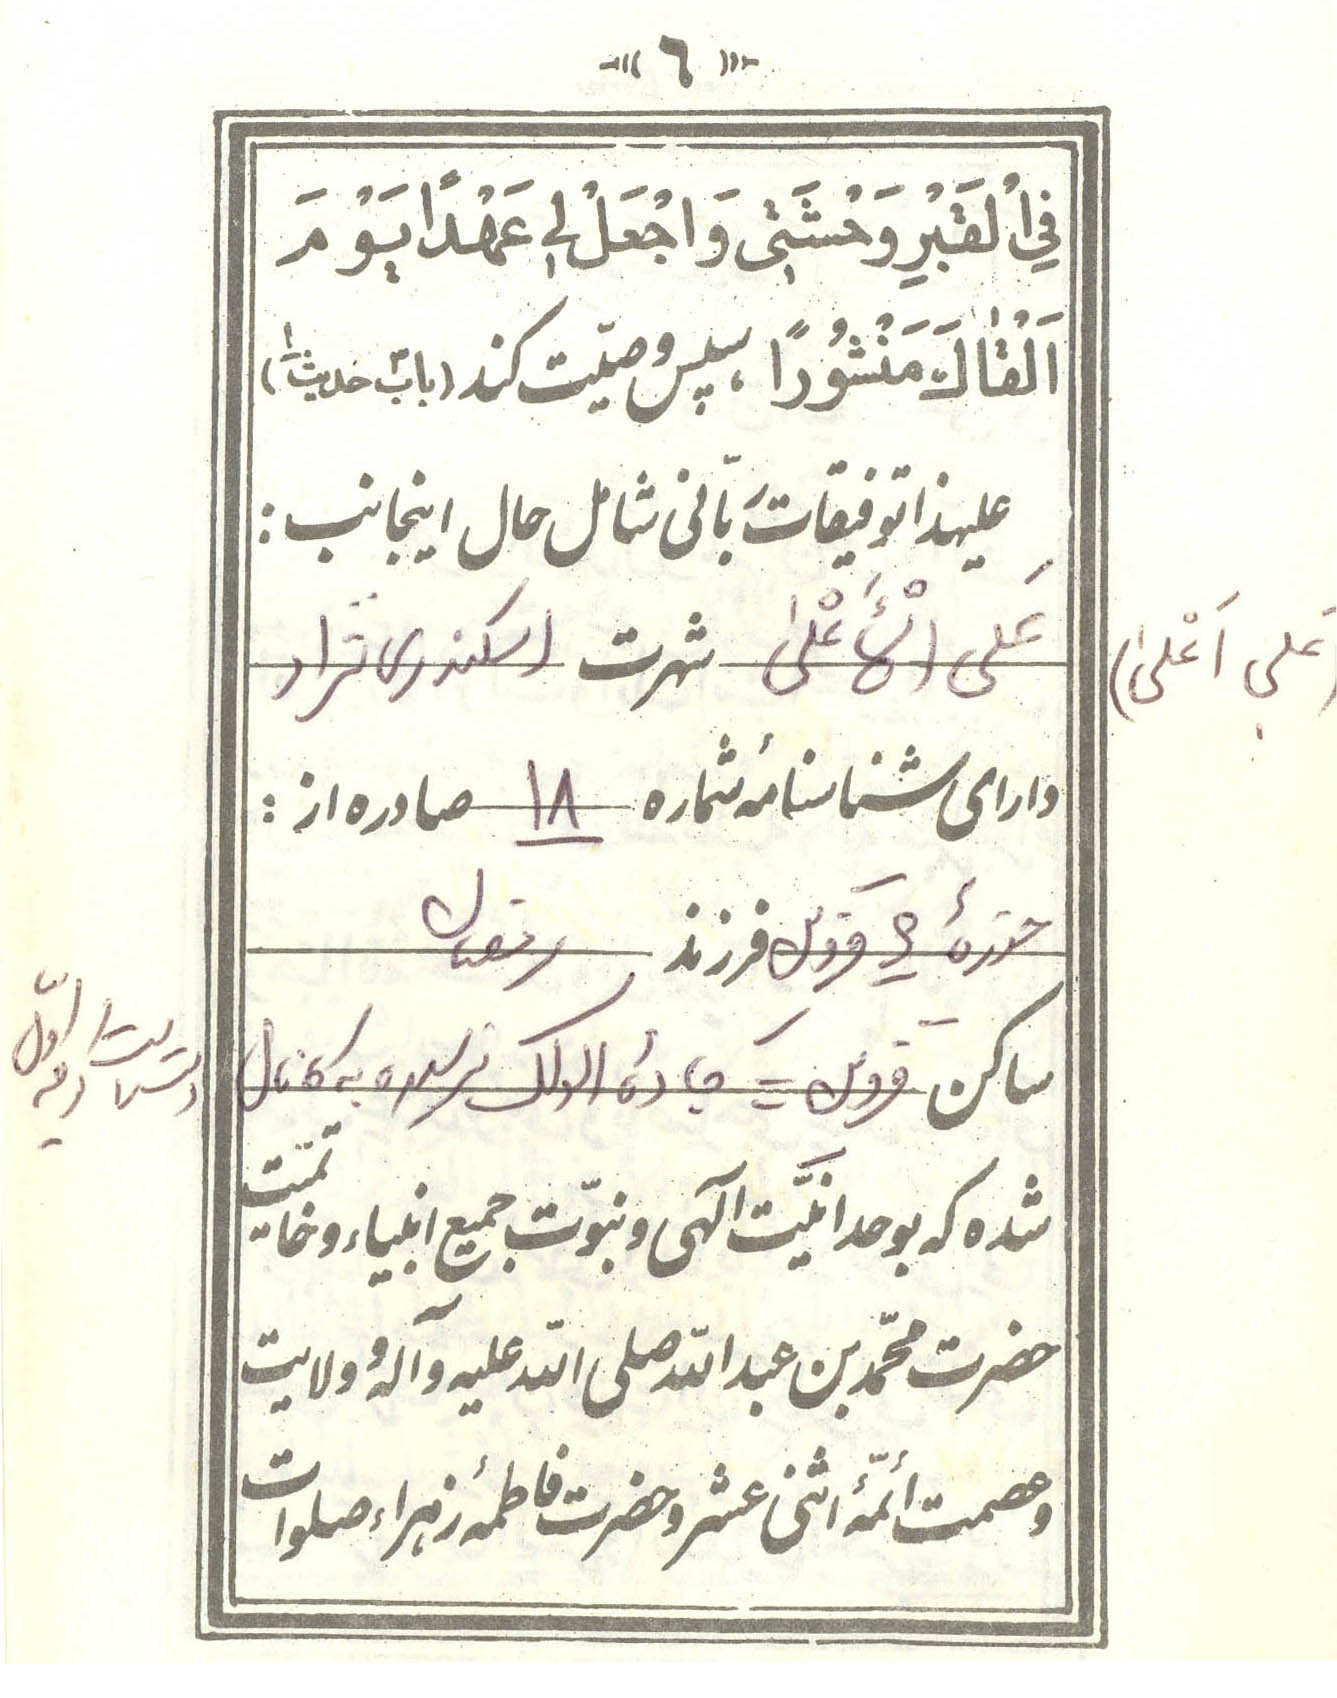 ٦
فِي الْقَبْرِ وَحْشَتِي وَاجْعَلْ لِي عَهْدًا يَوْمَ
اَلْقاكَ مَنْشُورًا، سپس وصیّت کند (باب۳ حدیث۱)
علیهذا توفیقات ربّانی شامل حال اینجانب :
عَلی الْأَعْلیٰ شهرت اسکندری نژاد
(عَلی اَعْلیٰ)
دارای شناسنامهٔ شماره ۱۸ صادره از :
حوزهٔ ۲ قزوین فرزند رمضان
ساکن قزوین = جادهٔ الولک نرسیده به کانال
دست راست اوّل
شده که بوحدانیَّت الهی و نبوّت جمیع انبیاء و خاتمیّت
حضرت محمّد بن عبدالله صلی الله علیه وآله و ولایت
وعصمت أئمّهٔ اثنی عشر و حضرت فاطمهٔ زهراء صلوات